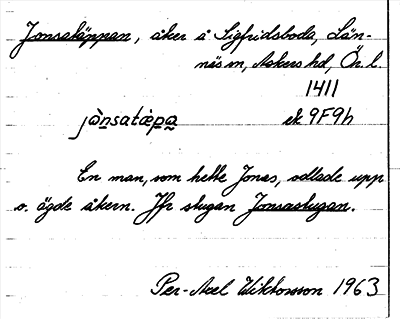 Jonsatäppan, åker å Sigfridsboda, Län-
näs sn, Askers hd, Ör. l.
1411
jònsatæ̀pa ek 9F9h
En man, som hette Jonas, odlade upp
o. ägde åkern. Jfr stugan Jonsastugan.
Per-Axel Wiktorsson 1963